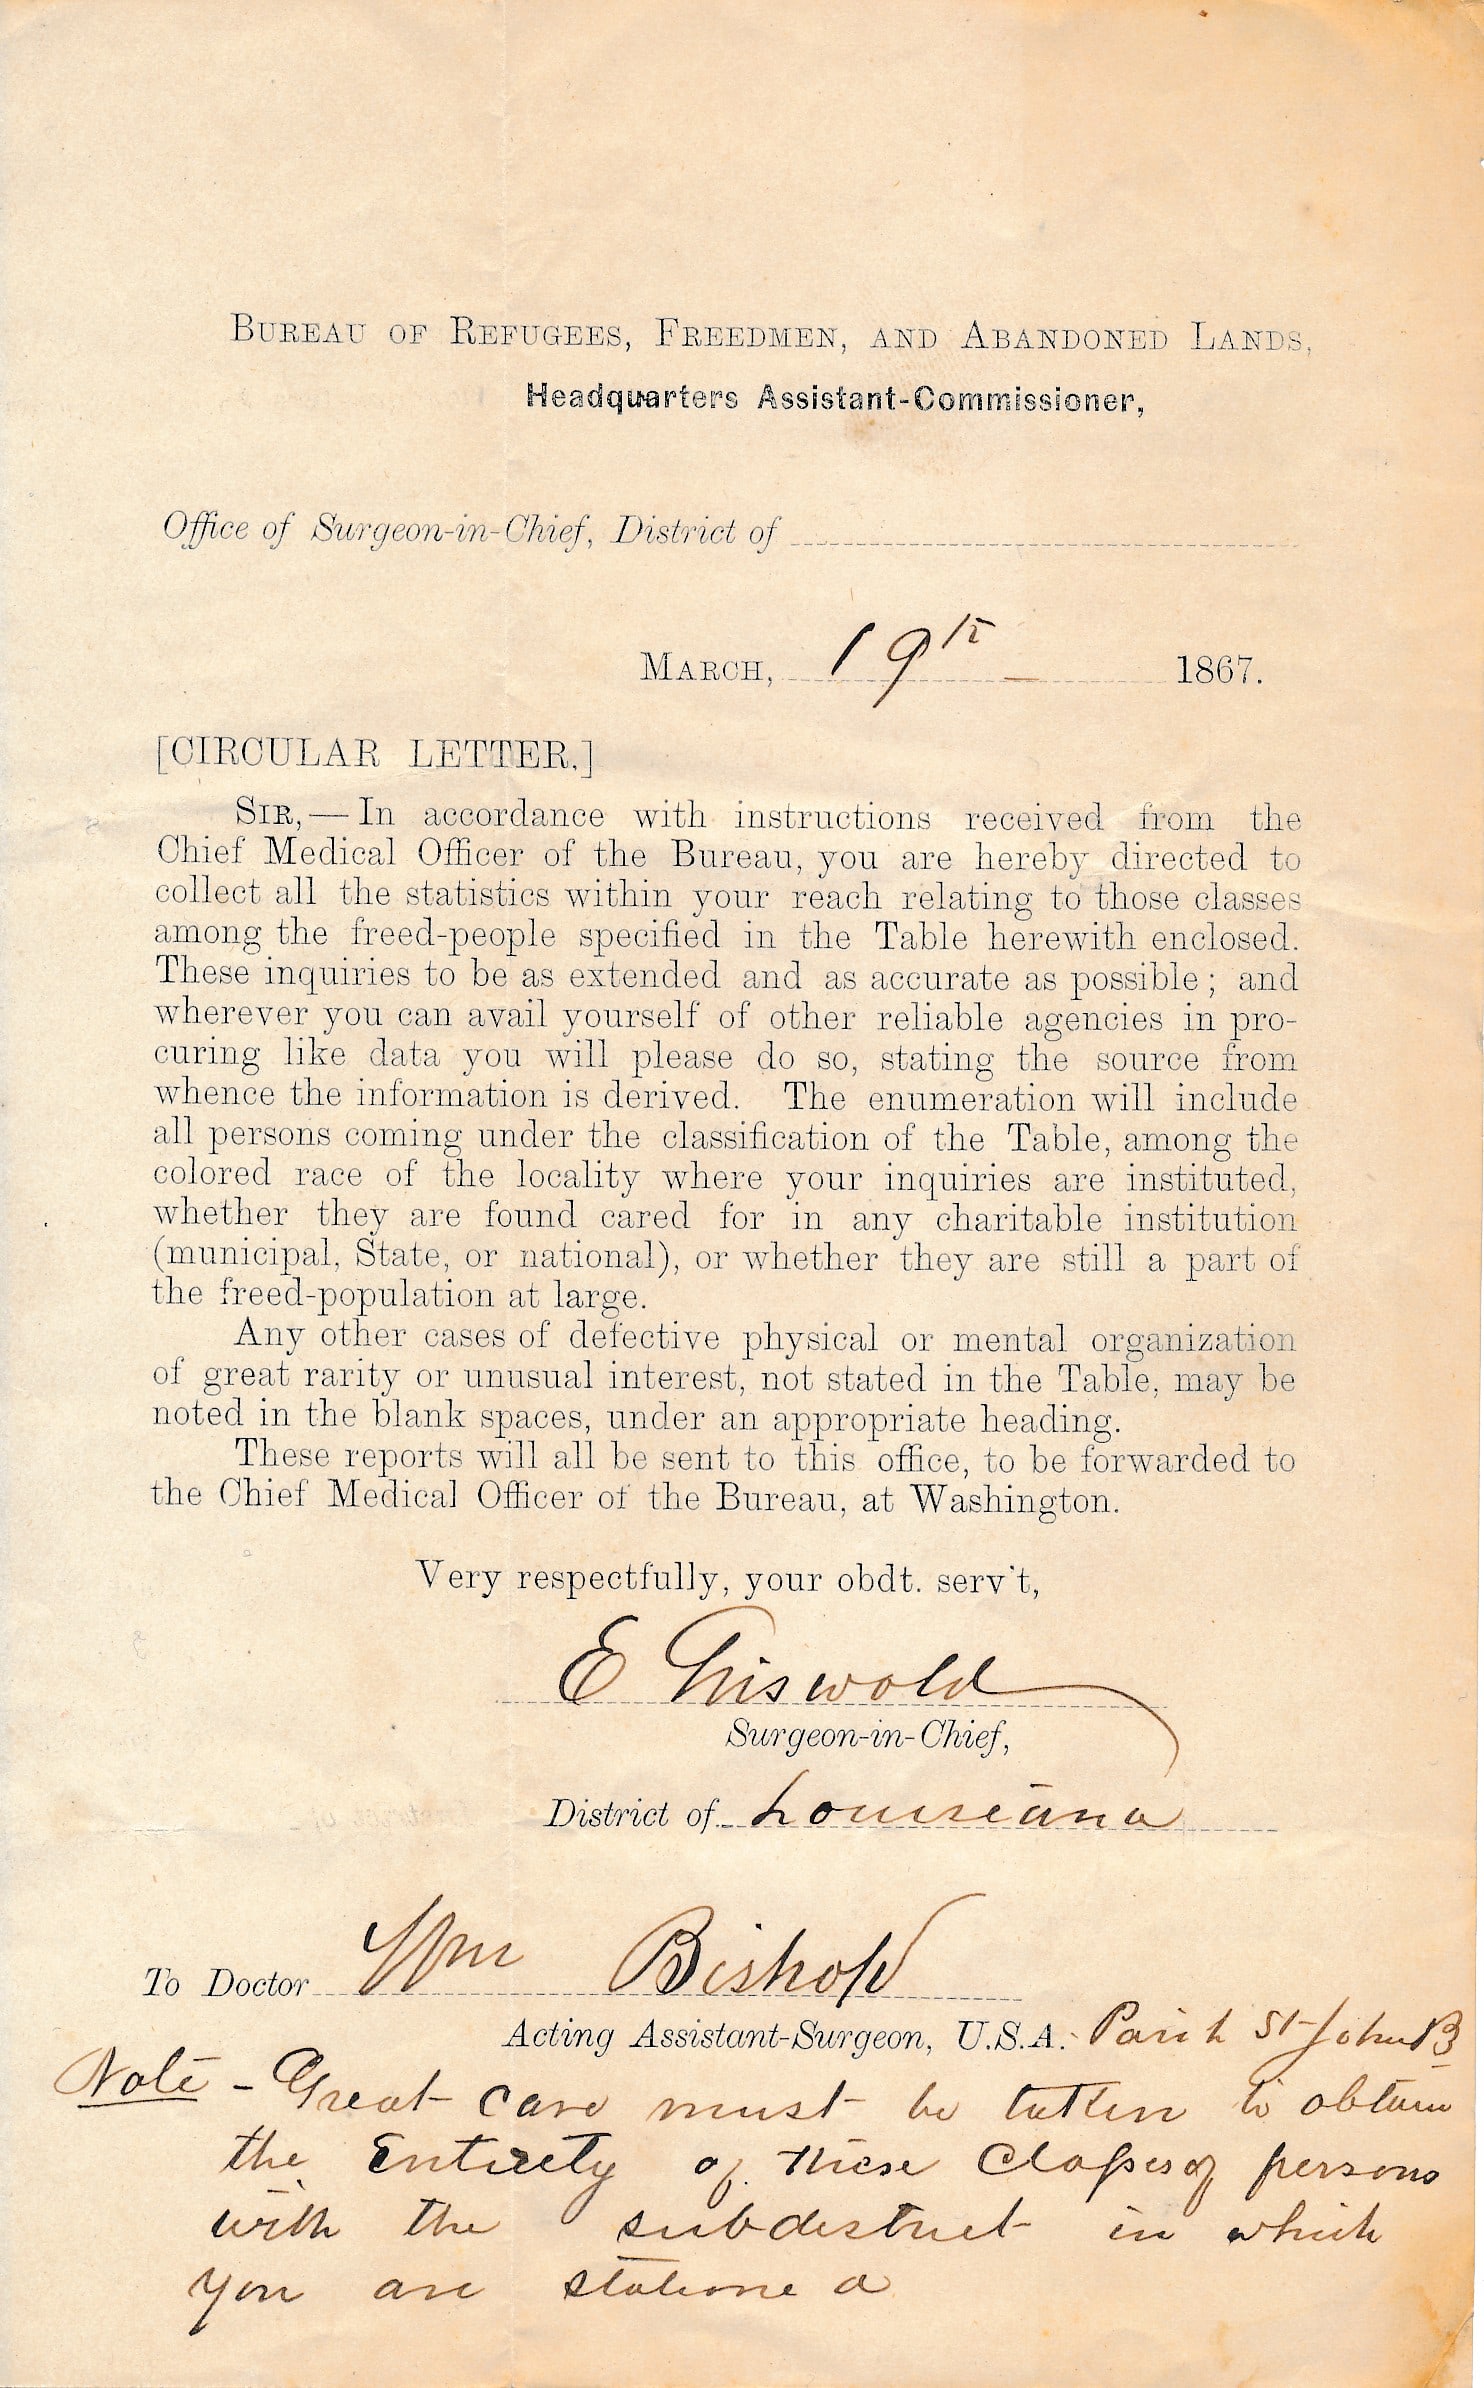 BUREAU OF REFUGEES, FREEDMEN, AND ABANDONED LANDS,
Headquarters Assistant-Commissioner,
Office of Surgeon-in-Chief, District of
MARCH, 19th 1867.
[CIRCULAR LETTER.]
SIR,—In accordance with instructions received from the
Chief Medical Officer of the Bureau, you are hereby directed to
collect all the statistics within your reach relating to those classes
among the freed-people specified in the Table herewith enclosed.
These inquiries to be as extended and as accurate as possible; and
wherever you can avail yourself of other reliable agencies in pro-
curing like data you will please do so, stating the source from
whence the information is derived. The enumeration will include
all persons coming under the classification of the Table, among the
colored race of the locality where your inquiries are instituted,
whether they are found cared for in any charitable institution
(municipal, State, or national), or whether they are still a part of
the freed-population at large.
Any other cases of defective physical or mental organization
of great rarity or unusual interest, not stated in the Table, may be
noted in the blank spaces, under an appropriate heading.
These reports will all be sent to this office, to be forwarded to
the Chief Medical Officer of the Bureau, at Washington.
Very respectfully, your obdt. serv't,
E Griswold
Surgeon-in-Chief,
District of Louisiana
To Doctor Wm Bishop
Acting Assistant-Surgeon, U.S.A. Parish St John B
Note - Great care must be taken to obtain
the Entirety of these Classes of persons
with the subdistrict in which
you are stationed